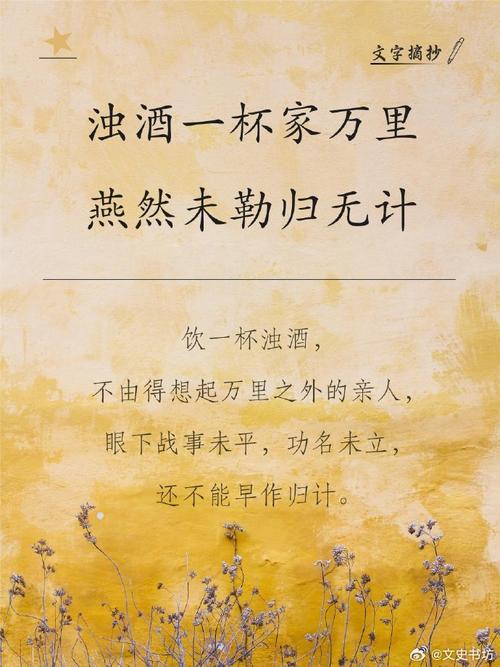 文字摘抄
浊酒一杯家万里
燕然未勒归无计
饮一杯浊酒，
不由得想起万里之外的亲人，
眼下战事未平，功名未立，
还不能早作归计。
@文史书坊